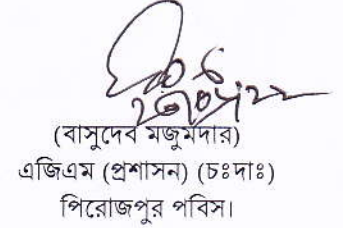 (বাসুদেব মজুমদার)
এজিএম (প্রশাসন) (চঃদাঃ)
পিরোজপুর পবিস।